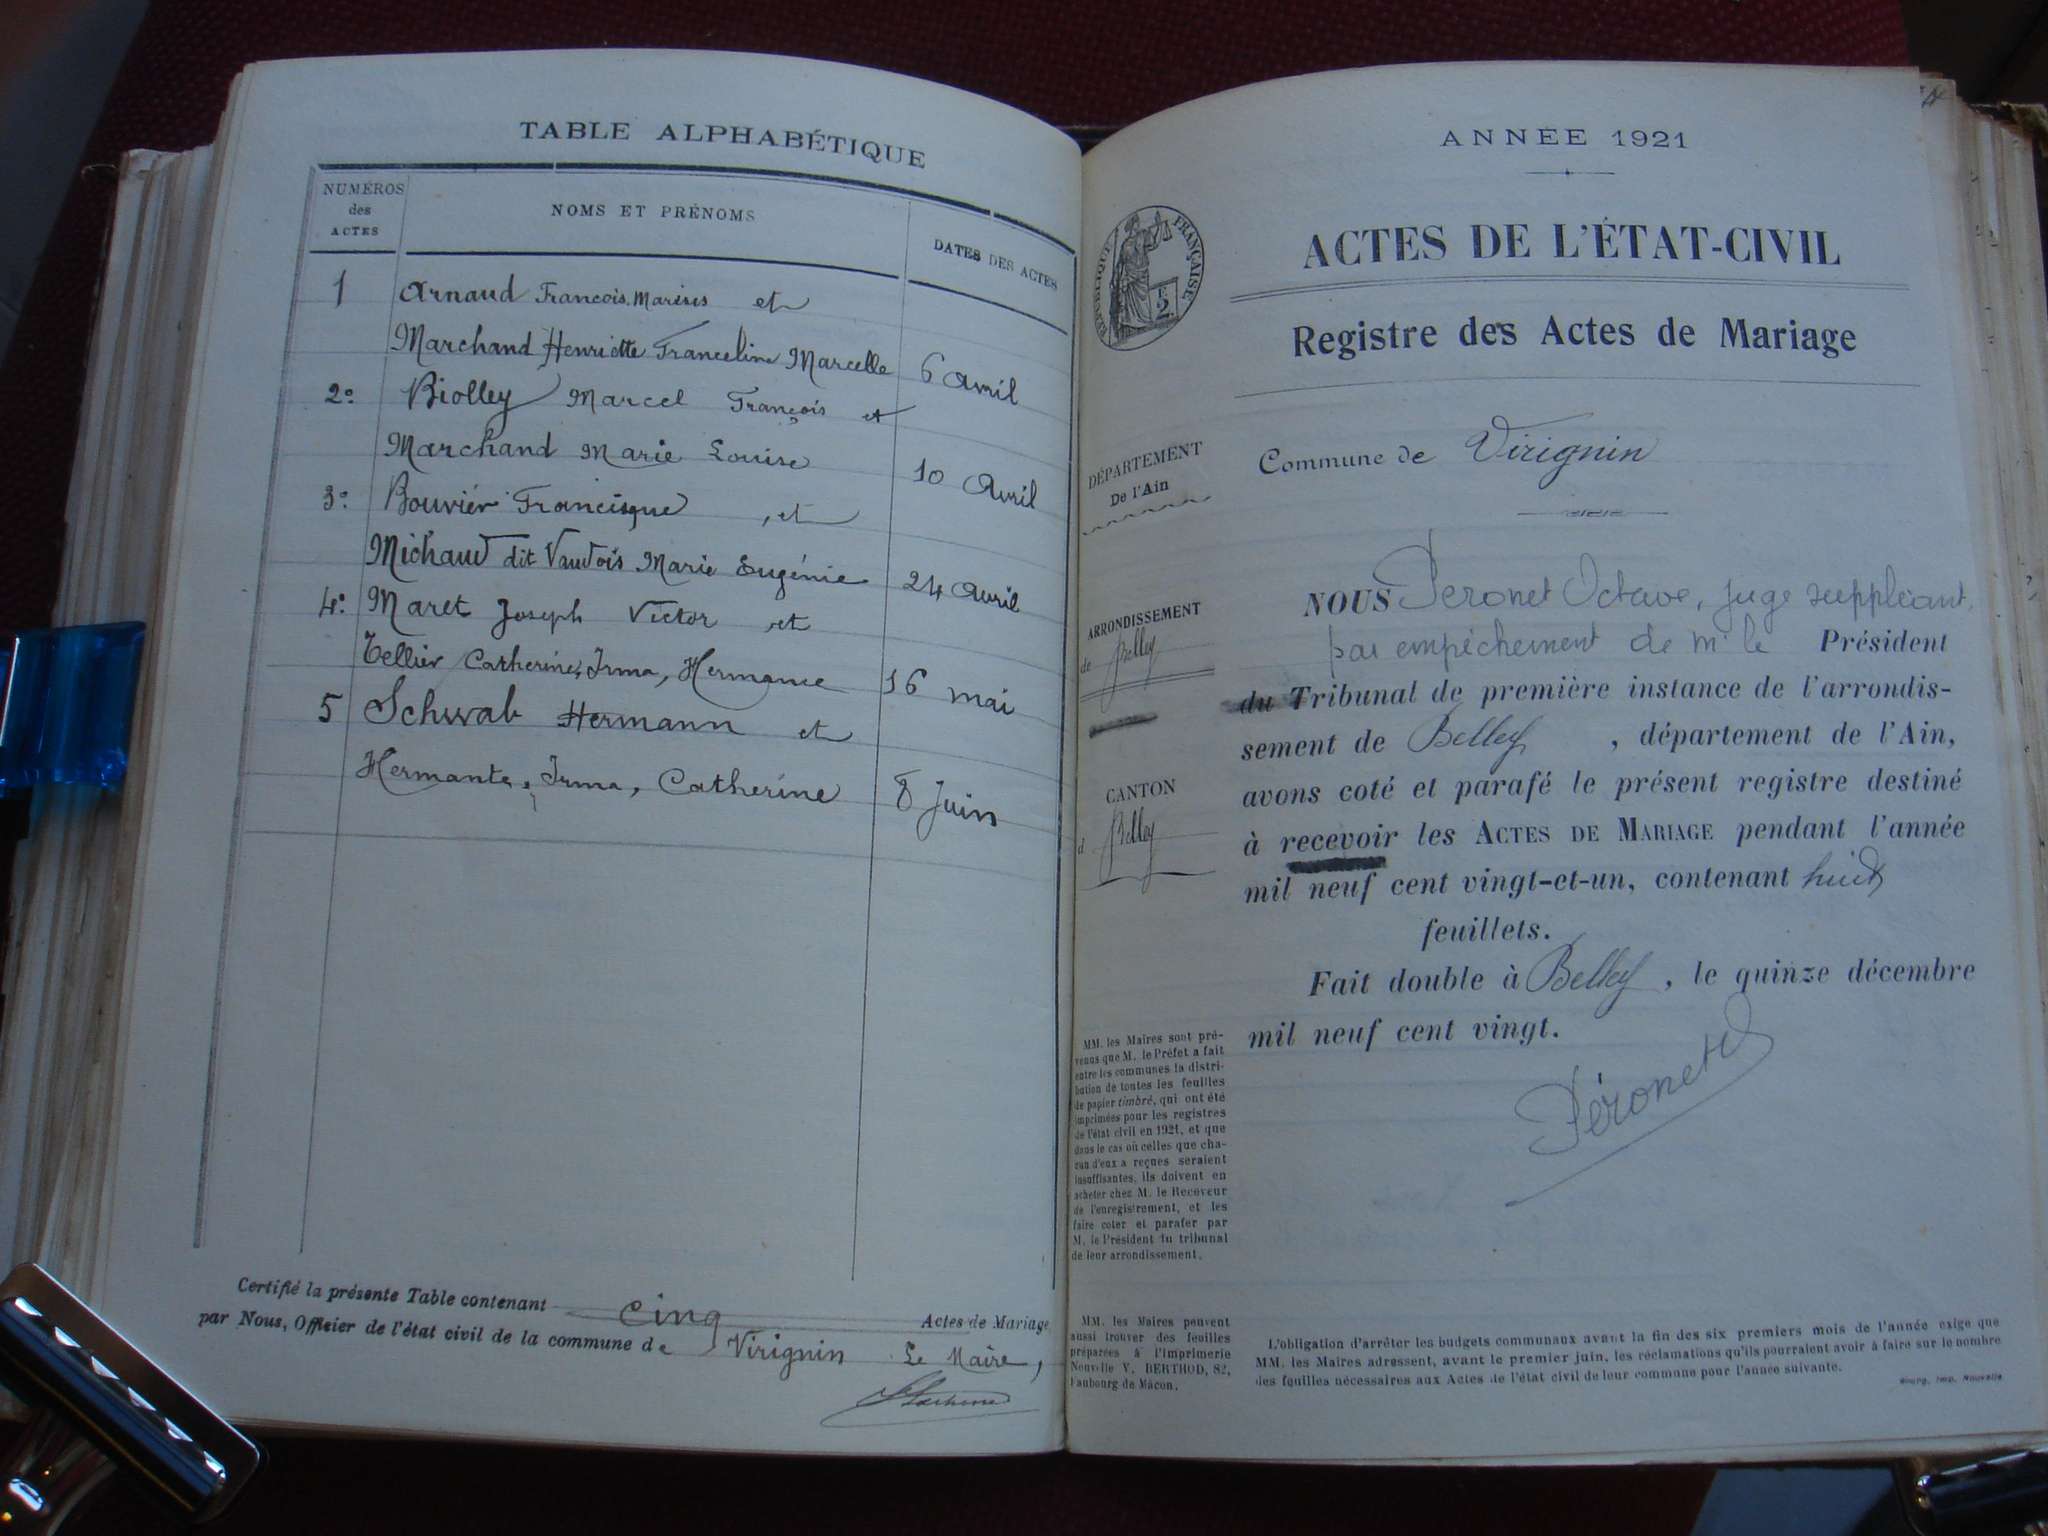 TABLE ALPHABÉTIQUE
NUMÉROS
des
ACTES
NOMS ET PRÉNOMS
DATES DES ACTES
1 Arnaud François Marius et
Marchand Henriette Franceline Marcelle 6 Avril
2° Biolley Marcel François et
Marchand Marie Louise 10 Avril
3° Bouvier Francisque, et
Michaud dit Vaudois Marie Eugénie 24 Avril
4° Maret Joseph Victor et
Tellier Catherine, Irma, Hermance 16 mai
5 Schwab Hermann et
Hermante, Irma, Catherine 8 Juin
Certifié la présente Table contenant cinq Actes de Mariage
par Nous, Officier de l'état civil de la commune de Virignin Le Maire,
ANNÉE 1921
RÉPUBLIQUE FRANÇAISE
ACTES DE L'ÉTAT-CIVIL
Registre des Actes de Mariage
DÉPARTEMENT
De l'Ain
Commune de Virignin
ARRONDISSEMENT
de Belley
CANTON
d Belley
NOUS Peronet Octave, juge suppléant,
par empêchement de Mr le Président
du Tribunal de première instance de l'arrondis-
sement de Belley, département de l'Ain,
avons coté et parafé le présent registre destiné
à recevoir les ACTES DE MARIAGE pendant l'année
mil neuf cent vingt-et-un, contenant huit
feuillets.
Fait double à Belley, le quinze décembre
mil neuf cent vingt.
Péronet
MM. les Maires sont pré-
venus que M. le Préfet a fait
entre les communes la distri-
bution de toutes les feuilles
de papier timbré, qui ont été
imprimées pour les registres
de l'état civil en 1921, et que
dans le cas où celles que cha-
cun d'eux a reçues seraient
insuffisantes, ils doivent en
acheter chez M. le Receveur
de l'enregistrement, et les
faire coter et parafer par
M. le Président du tribunal
de leur arrondissement.
MM. les Maires peuvent
aussi trouver des feuilles
préparées à l'Imprimerie
Nouvelle V. BERTHOD, 82,
Faubourg de Mâcon.
L'obligation d'arrêter les budgets communaux avant la fin des six premiers mois de l'année exige que
MM. les Maires adressent, avant le premier juin, les réclamations qu'ils pourraient avoir à faire sur le nombre
des feuilles nécessaires aux Actes de l'état civil de leur commune pour l'année suivante.
Bourg, Imp. Nouvelle